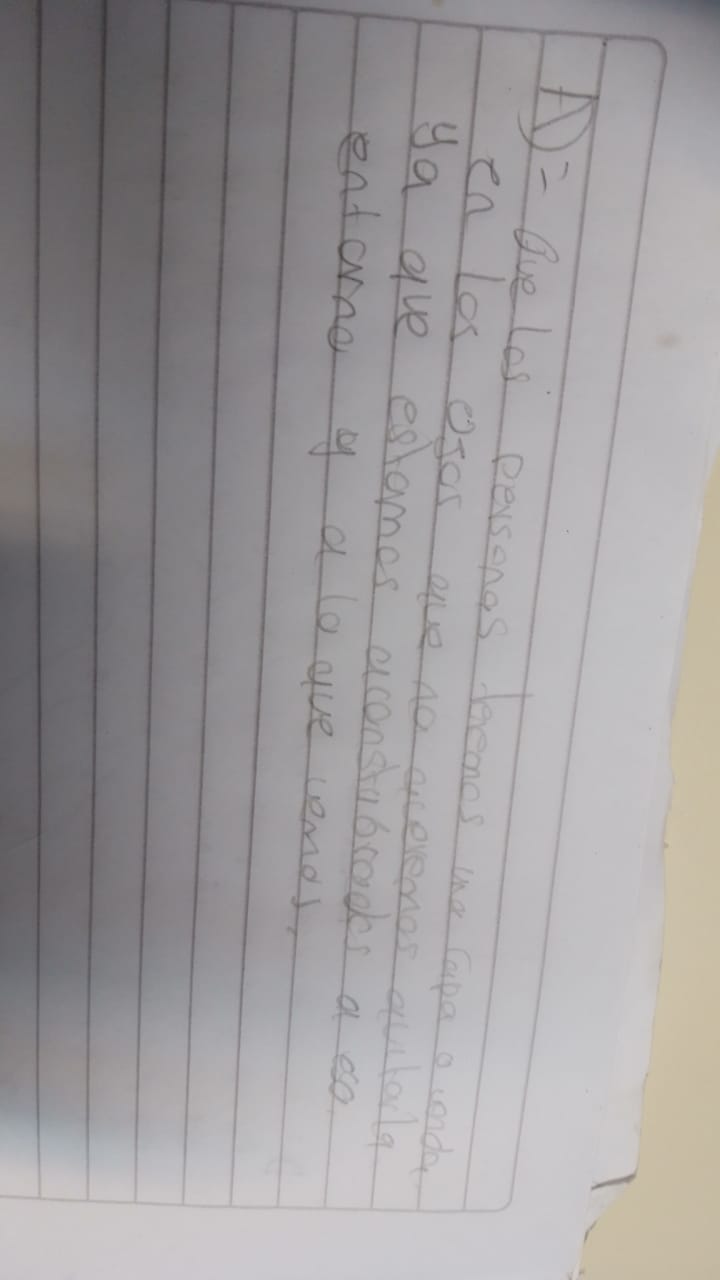 A)= Que las personas tenemos una capa o venda
en los ojos que no queremos quitarla
ya que estamos aconstubrados a eso
entorno y a lo que vemos,